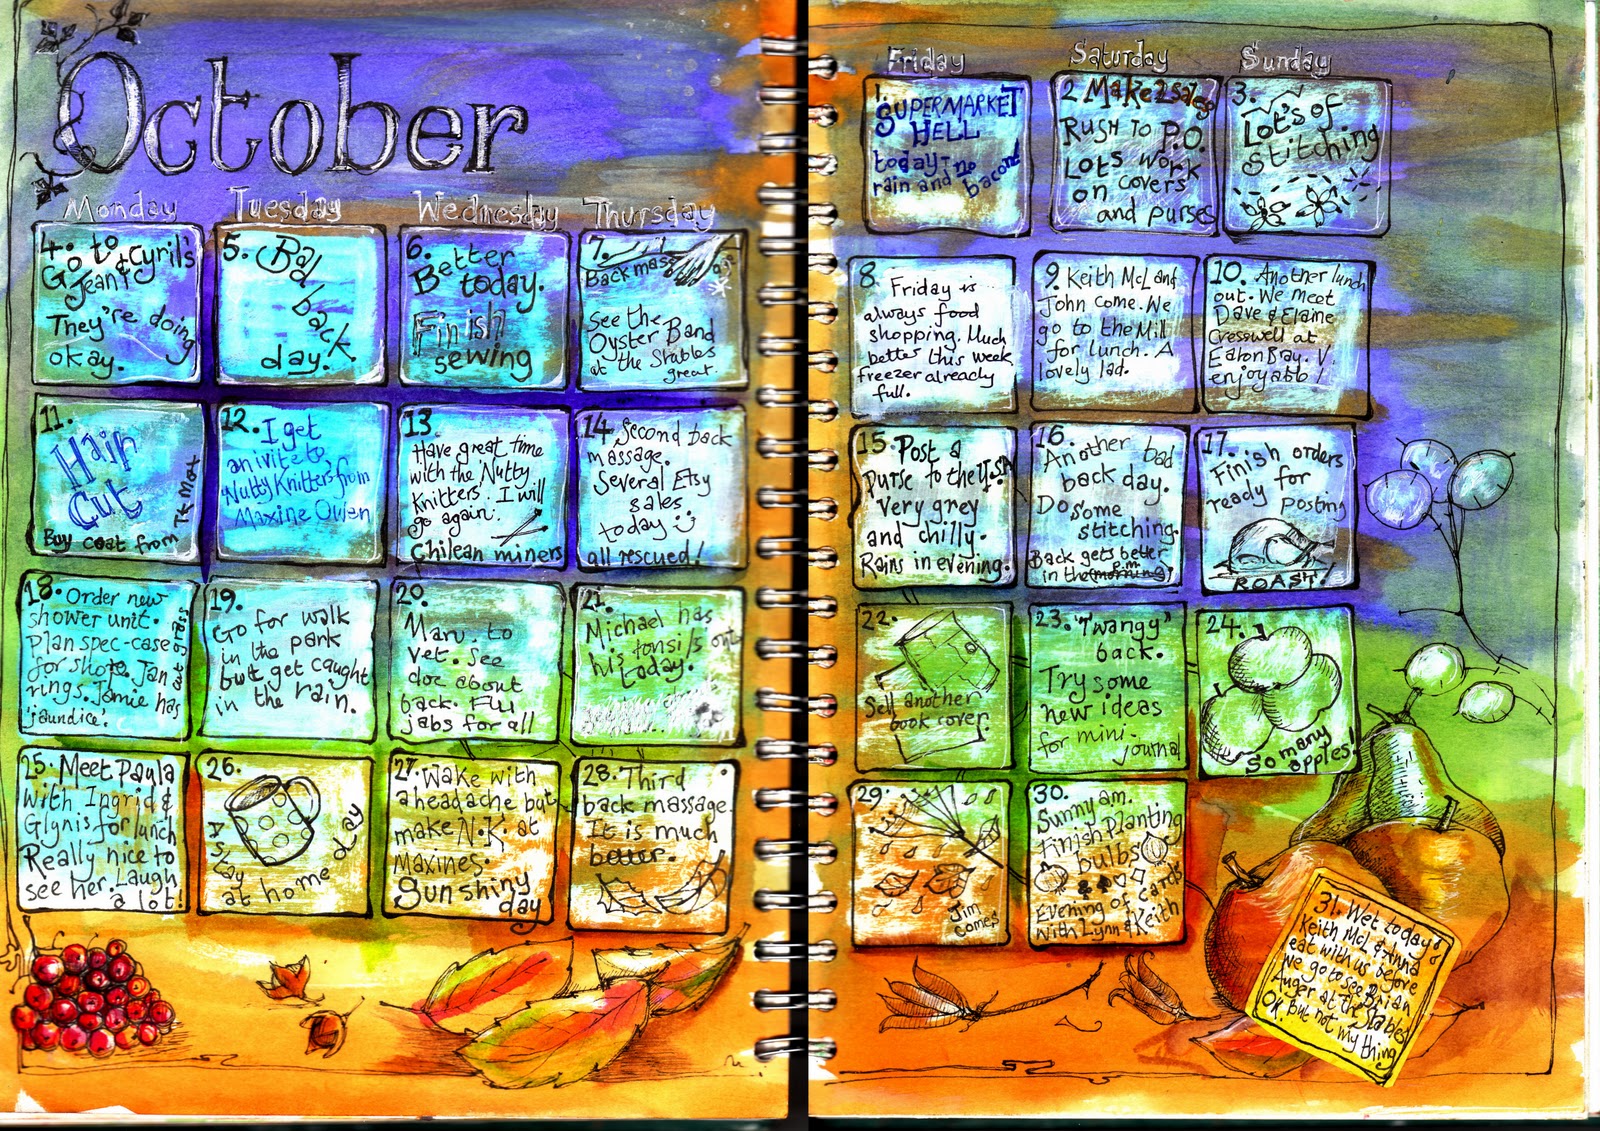 October
Monday
Tuesday
Wednesday
Thursday
Friday
Saturday
Sunday
1.
SUPERMARKET
HELL
today-no
rain and bacon!
2 Make 2 sales
RUSH TO P.O.
LOTS WORK
ON COVERS
and purses
3.
Lot's of
Stitching
4. to
Go Cyril's
Jean &
They're doing
okay.
5. Bad
back
day.
6.
Better
today.
Finish
sewing
7.
Back mass age
See the
Oyster Band
at the Stables
great.
8
Friday is
always food
shopping. Much
better this week
freezer already
full.
9. Keith McL and
John come. We
go to the Mill
for lunch. A
lovely lad.
10. Another lunch
out. We meet
Dave & Elaine
Cresswell at
Eaton Bray. V.
enjoyable!
11.
Hair
Cut
Buy coat from TK Max
12. I get
an ivite to
'Nutty Knitters from
Maxine Owen
13
Have great time
with the 'Nutty
Knitters. I will
go again.
Chilean miners
14. Second back
massage.
Several Etsy
sales
today
all rescued!
15. Post a
purse to the U.S.A
Very grey
and chilly.
Rains in evening.
16.
Another bad
back day.
Do some
stitching.
Back gets better
in the (morning) p.m.
17.
Finish orders
ready for
posting
ROAST!
18. Order new
shower unit.
Plan spec-case
for shop. Jan
rings. Jamie has
'jaundice'.
cut grass
19.
Go for walk
in the park
but get caught
in the rain.
20.
Marv. to
vet. See
doc about
back. Flu
jabs for all
21.
Michael has
his tonsils out
today.
22.
Sell another
book cover.
23. "Twangy"
back.
Try some
new ideas
for mini-
journal
24.
So many
apples!
25. Meet Paula
with Ingrid &
Glynis for lunch
Really nice to
see her. Laugh
a lot!
26.
A stay at home day
27. Wake with
a headache but
make N.K. at
Maxines.
Sunshiny
day
28. Third
back massage.
It is much
better.
29.
Jim
comes
30.
Sunny am.
finish planting
bulbs
Evening of cards
with Lynn & Keith
31. Wet today
Keith McL & Anna
eat with us before
we go to see Brian
Auger at the Stables
OK. but not my thing